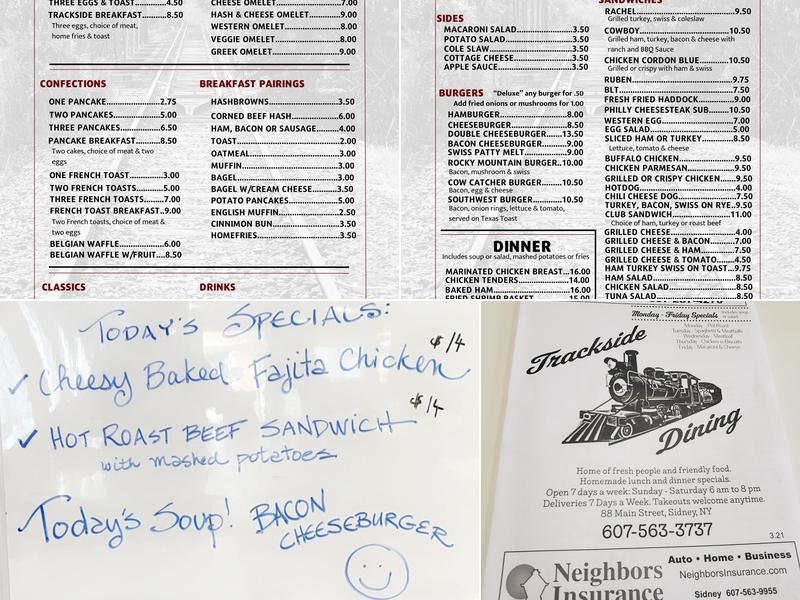 THREE EGGS & TOAST....4.50
TRACKSIDE BREAKFAST....8.50
Three eggs, choice of meat,
home fries & toast
CHEESE OMELET....7.00
HASH & CHEESE OMELET....9.00
WESTERN OMELET....8.00
VEGGIE OMELET....8.00
GREEK OMELET....9.00
CONFECTIONS
ONE PANCAKE....2.75
TWO PANCAKES....5.00
THREE PANCAKES....6.50
PANCAKE BREAKFAST....8.50
Two cakes, choice of meat & two
eggs
ONE FRENCH TOAST....3.00
TWO FRENCH TOASTS....5.00
THREE FRENCH TOASTS....7.00
FRENCH TOAST BREAKFAST..9.00
Two French toasts, choice of meat &
two eggs
BELGIAN WAFFLE....6.00
BELGIAN WAFFLE W/FRUIT....8.50
BREAKFAST PAIRINGS
HASHBROWNS....3.50
CORNED BEEF HASH....6.00
HAM, BACON OR SAUSAGE....4.00
TOAST....2.00
OATMEAL....3.00
MUFFIN....3.00
BAGEL....3.00
BAGEL W/CREAM CHEESE....3.50
POTATO PANCAKES....5.00
ENGLISH MUFFIN....2.50
CINNIMON BUN....3.50
HOMEFRIES....3.50
CLASSICS
DRINKS
SIDES
MACARONI SALAD....3.50
POTATO SALAD....3.50
COLE SLAW....3.50
COTTAGE CHEESE....3.50
APPLE SAUCE....3.50
BURGERS "Deluxe" any burger for .50
Add fried onions or mushrooms for 1.00
HAMBURGER....8.00
CHEESEBURGER....8.50
DOUBLE CHEESEBURGER....13.50
BACON CHEESEBURGER....9.00
SWISS PATTY MELT....9.00
ROCKY MOUNTAIN BURGER..10.00
Bacon, mushroom & swiss
COW CATCHER BURGER....10.50
Bacon, egg & cheese
SOUTHWEST BURGER....10.50
Bacon, onion rings, lettuce & tomato,
served on Texas Toast
DINNER
Includes soup or salad, mashed potatoes or fries
MARINATED CHICKEN BREAST...16.00
CHICKEN TENDERS....14.00
BAKED HAM....16.00
FRIED SHRIMP BASKET....15.00
SANDWICHES
RACHEL....9.50
Grilled turkey, swiss & coleslaw
COWBOY....10.50
Grilled ham, turkey, bacon & cheese with
ranch and BBQ Sauce
CHICKEN CORDON BLUE....10.50
Grilled or crispy with ham & swiss
RUBEN....9.75
BLT....7.50
FRESH FRIED HADDOCK....9.00
PHILLY CHEESESTEAK SUB....10.50
WESTERN EGG....7.00
EGG SALAD....5.00
SLICED HAM OR TURKEY....8.50
Lettuce, tomato & cheese
BUFFALO CHICKEN....9.50
CHICKEN PARMESAN....9.50
GRILLED OR CRISPY CHICKEN....9.50
HOTDOG....4.00
CHILI CHEESE DOG....7.50
TURKEY, BACON, SWISS ON RYE..9.50
CLUB SANDWICH....11.00
Choice of ham, turkey or roast beef
GRILLED CHEESE....4.00
GRILLED CHEESE & BACON....7.00
GRILLED CHEESE & HAM....7.00
GRILLED CHEESE & TOMATO....4.50
HAM TURKEY SWISS ON TOAST...9.75
HAM SALAD....8.50
TUNA SALAD....8.50
TODAY'S SPECIALS:
✓ Cheesy Baked Fajita Chicken $14
✓ HOT ROAST BEEF SANDWICH $14
with mashed potatoes
Today's Soup! BACON
CHEESEBURGER
Monday - Friday Specials
Monday - Pot Roast
Tuesday - Spaghetti & Meatballs
Wednesday - Meatloaf
Thursday - Chicken n Biscuits
Friday - Macaroni & Cheese
Trackside
Dining
Home of fresh people and friendly food.
Homemade lunch and dinner specials.
Open 7 days a week: Sunday - Saturday 6 am to 8 pm
Deliveries 7 Days a Week. Takeouts welcome anytime.
88 Main Street, Sidney, NY
607-563-3737
3.21
Neighbors
Insurance
Auto • Home • Business
NeighborsInsurance.com
Sidney 607-563-9955